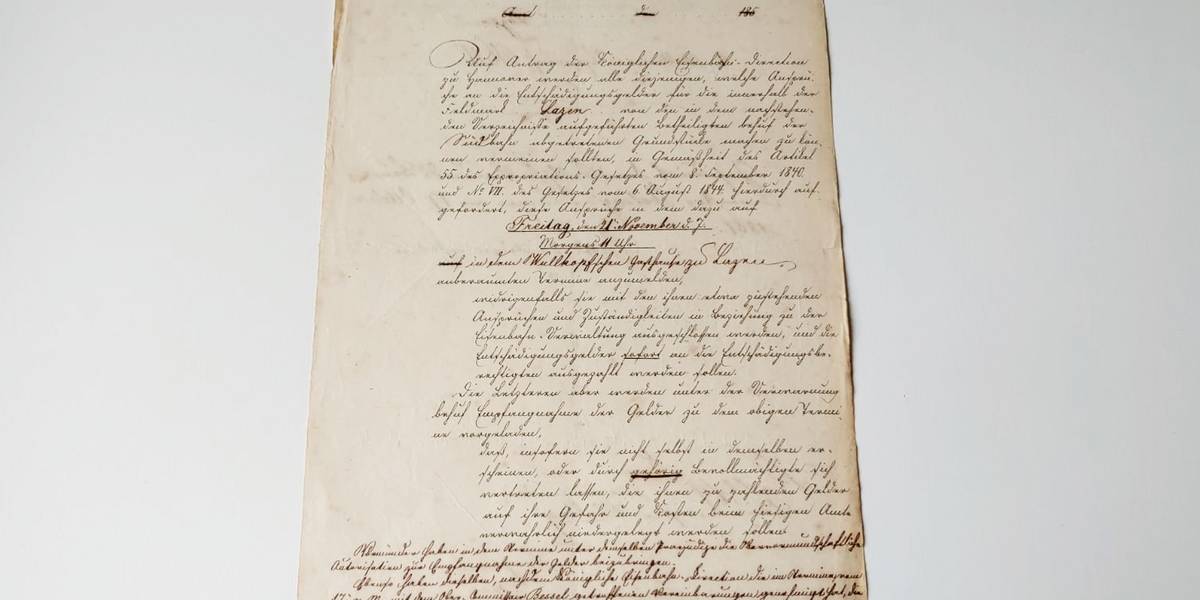 Am den 185
Auf Antrag der Königlichen Eisenbahn-Direction
zu Hannover werden alle diejenigen, welche Ansprü-
che an die Entschädigungsgelder für die innerhalb der
Feldmark Lazen von den in dem nachstehen-
den Verzeichnisse aufgeführten Betheiligten behuf der
Südbahn abgetretenen Grundstücke machen zu kön-
nen vermeinen sollten, in Gemäßheit des Artikel
55 des Expropriations-Gesetzes vom 8. September 1840
und No VII. des Gesetzes vom 6. August 1844 hierdurch auf-
gefordert, diese Ansprüche in dem dazu auf
Freitag, den 21ten November d. J.
Morgens 11 Uhr
in dem Wallkopfschen Gasthause zu Lazen
anberaumten Termine anzumelden,
widrigenfalls sie mit den ihnen etwa zustehenden
Ansprüchen und Zuständigkeiten in Beziehung zu der
Eisenbahn-Verwaltung ausgeschlossen werden, und die
Entschädigungsgelder sofort an die Entschädigungsbe-
rechtigten ausgezahlt werden sollen.
Die Letzteren aber werden unter der Verwarnung
behuf Empfangnahme der Gelder zu dem obigen Termi-
ne vorgeladen,
daß, insofern sie nicht selbst in demselben er-
scheinen, oder durch gehörig Bevollmächtigte sich
vertreten lassen, die ihnen zu zahlenden Gelder
auf ihre Gefahr und Kosten beim hiesigen Amte
verwahrlich niedergelegt werden sollen.
Vormünder haben in dem Termine unter demselben Präjudize die Obervormundschaftliche
Autorisation zur Empfangnahme der Gelder beizubringen.
Ebenso haben dieselben, nachdem Königliche Eisenbahn-Direction die im Termine vom
17. v. M. mit dem Ober-Commissair Bessel getroffenen Vereinbarungen genehmigt hat, die